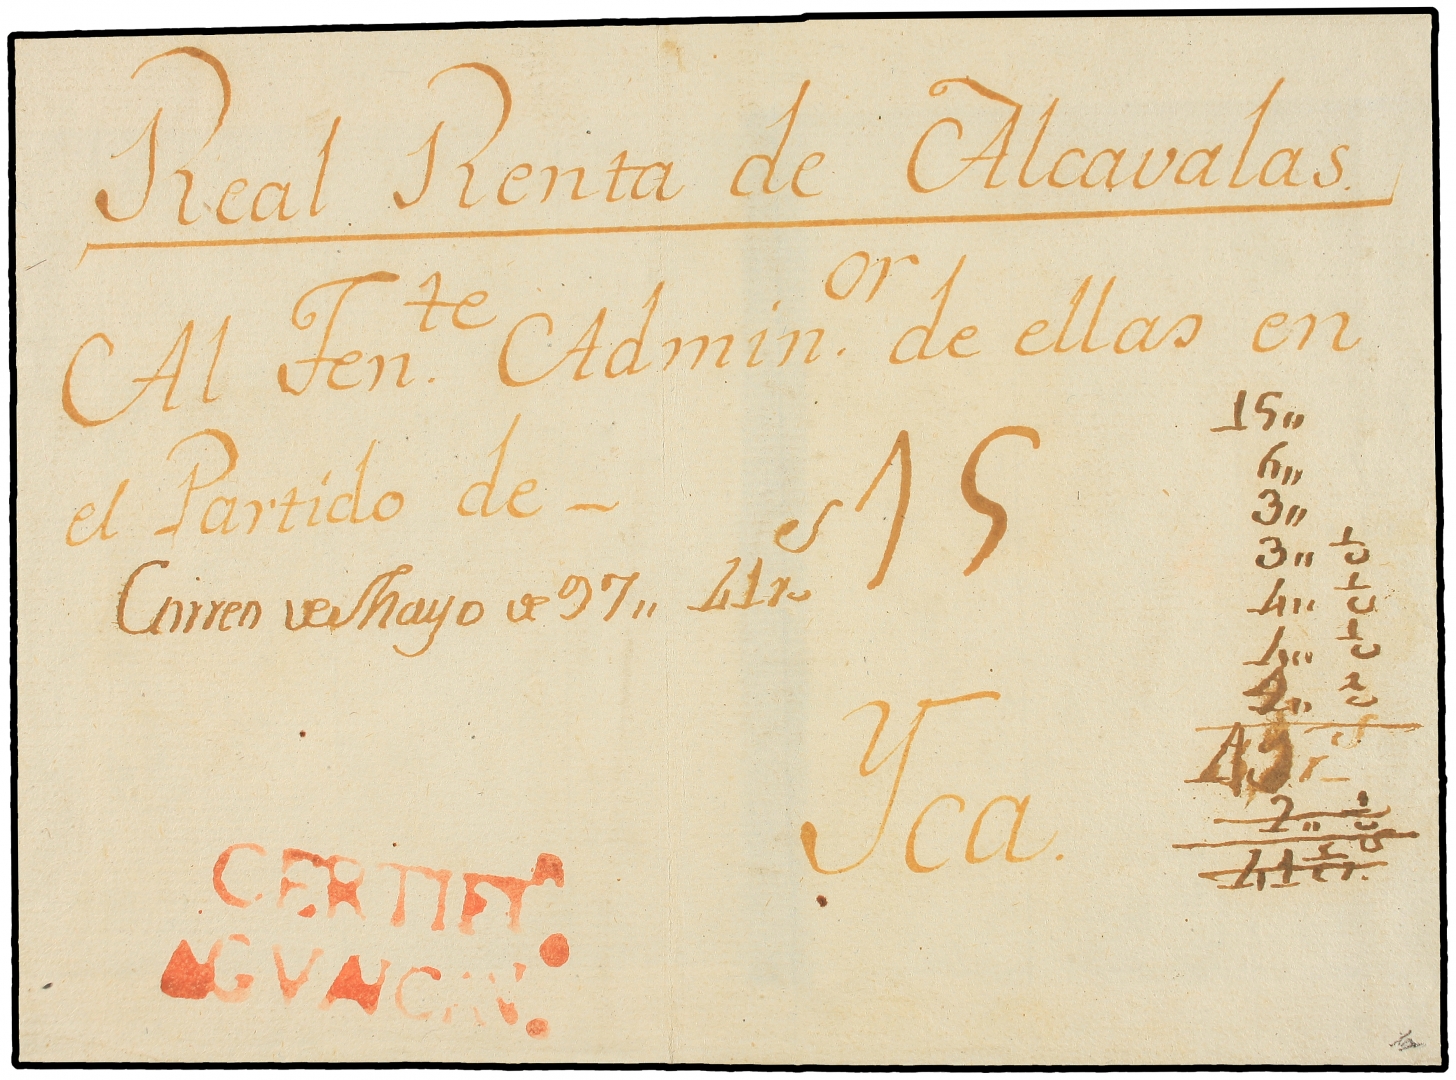 Real Renta de Alcavalas.
Al Ten.te Admin.or de ellas en
el Partido de –
15
Correo de Mayo de 97,, 41 rs
Yca.
15,,
6,,
3,,
3,, 1/2
4,, 1/2
4,, 1/2
2,, 1/2
2,, 1/2
41 rs.
CERTIFI
GVANCAV.